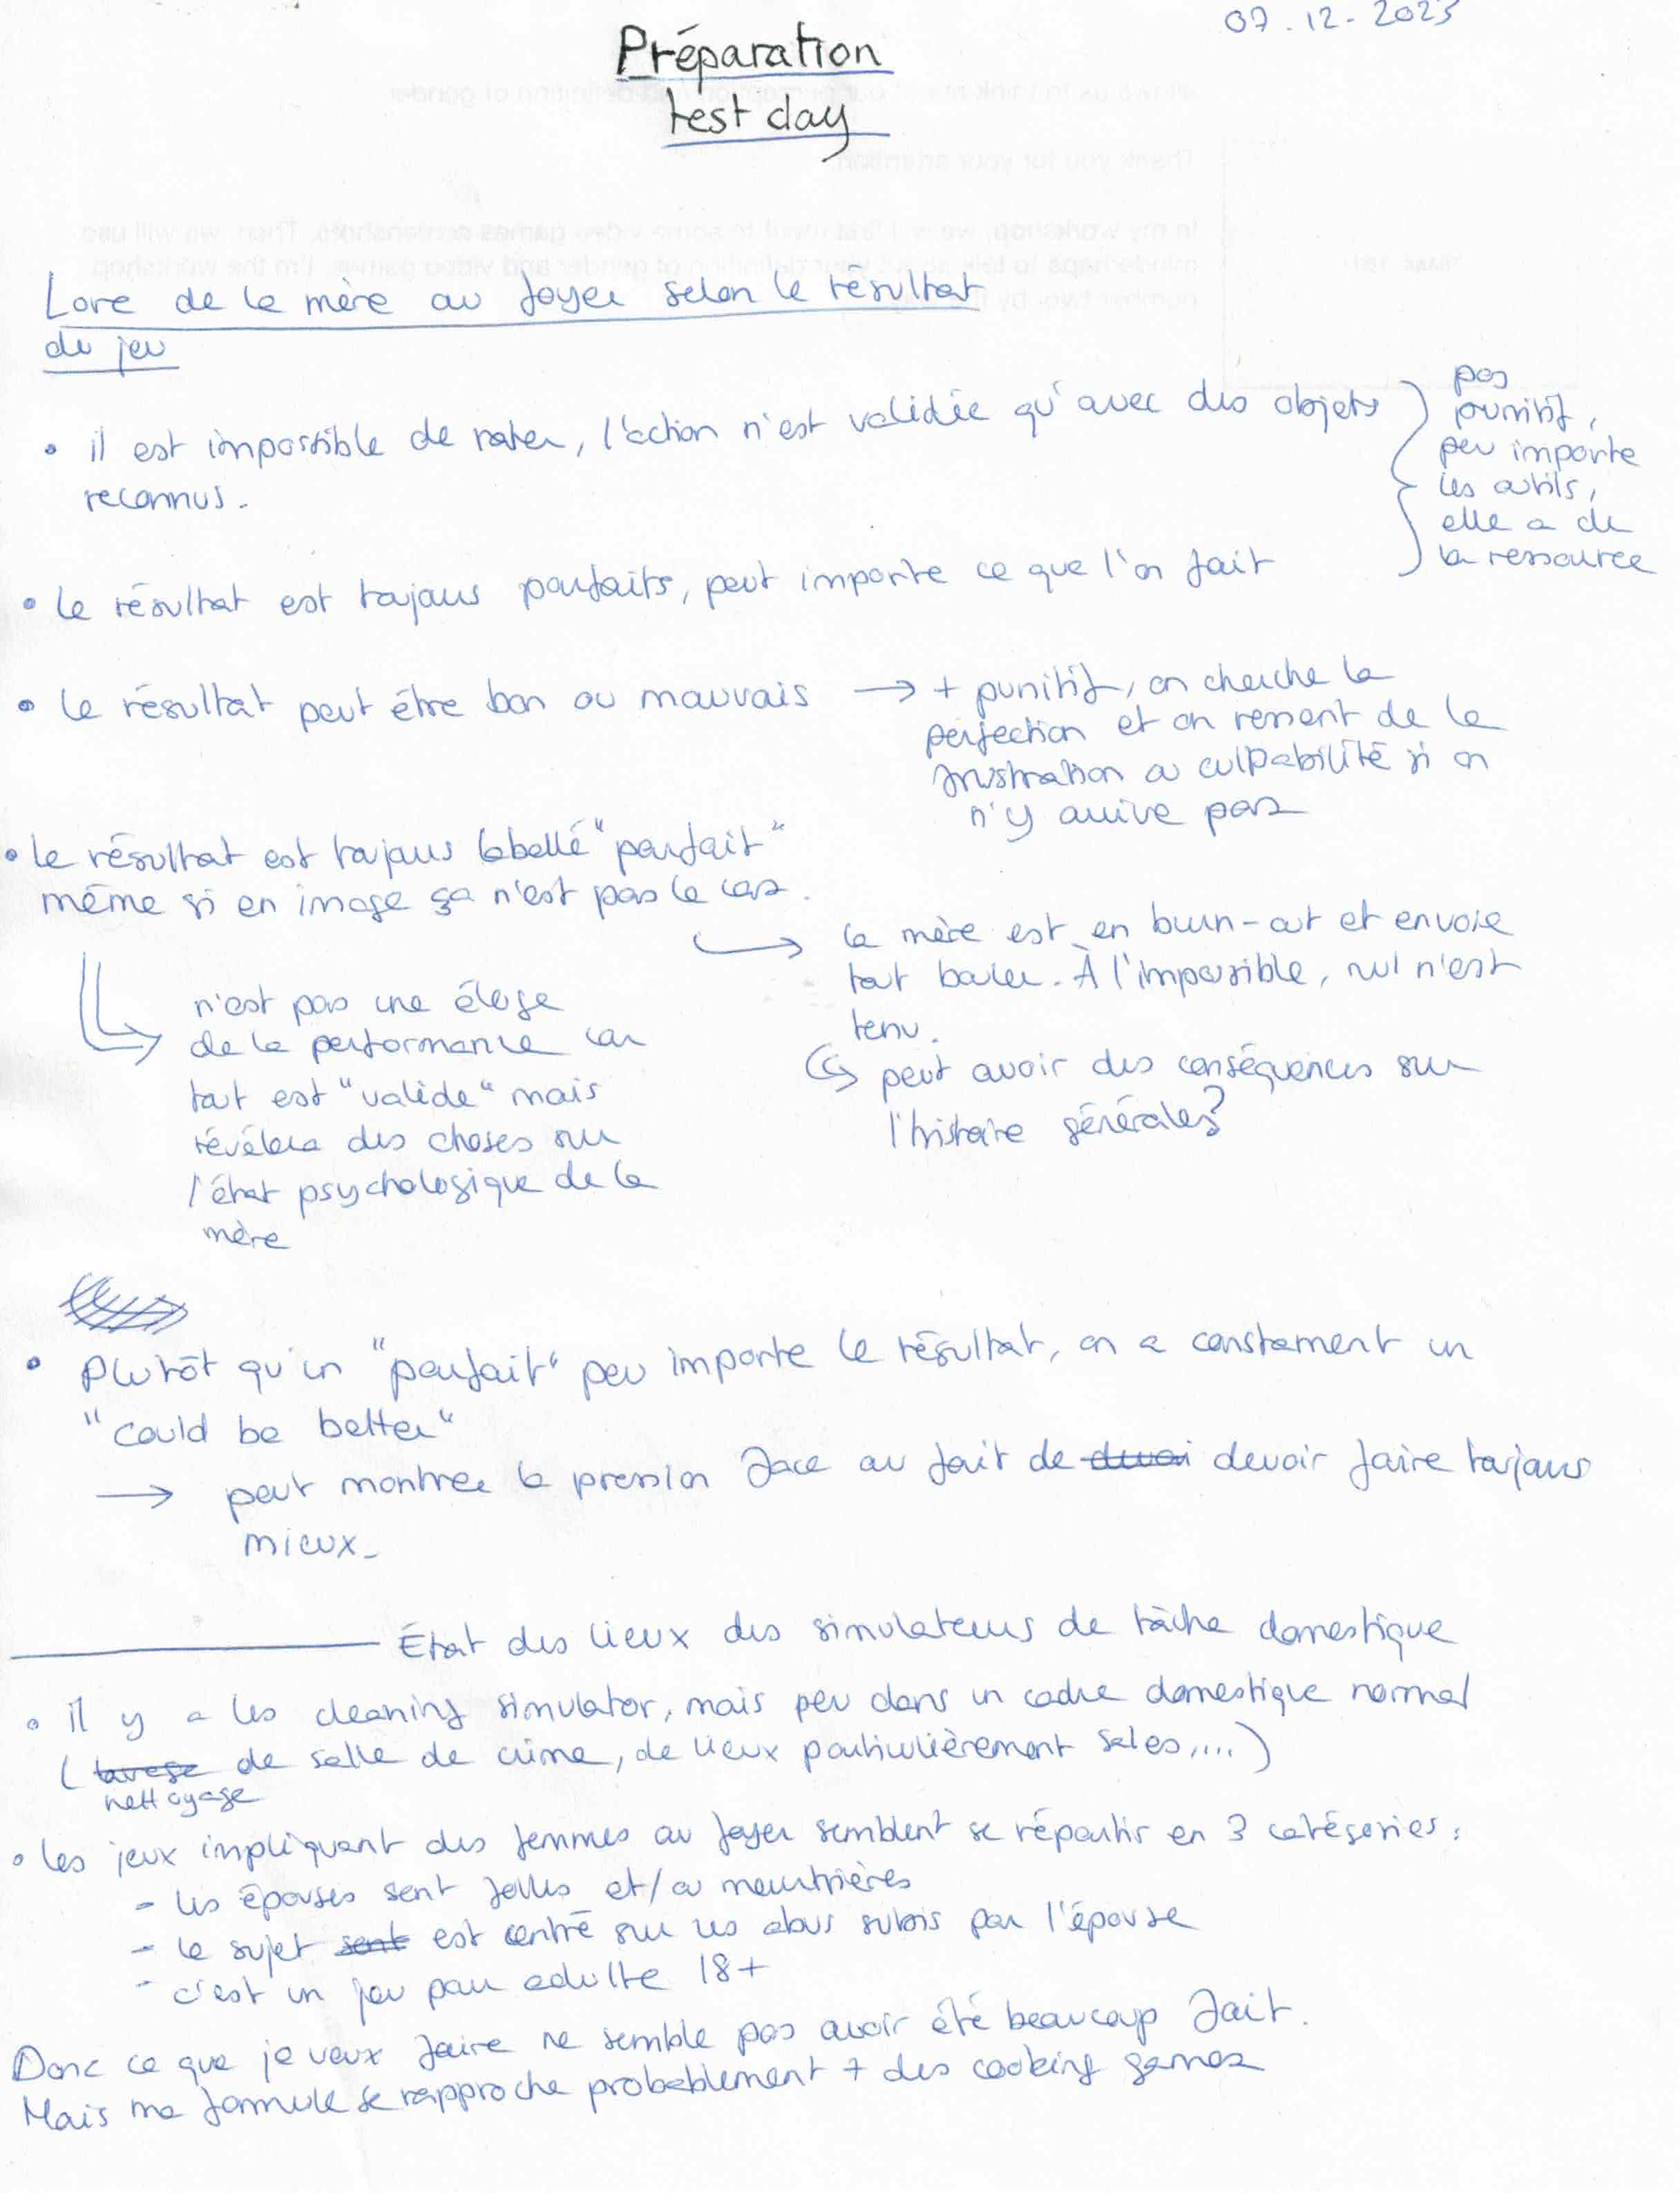 07.12-2023
Préparation
test day
Lore de la mère au foyer selon le résultat
du jeu
• il est impossible de rater, l'action n'est validée qu'avec des objets
reconnus.
pas
punitif,
peu importe
les outils,
elle a de
la ressource
• le résultat est toujours parfaits, peut importe ce que l'on fait
• le résultat peut être bon ou mauvais → + punitif, on cherche la
perfection et on ressent de la
frustration ou culpabilité si on
n'y arrive pas
• le résultat est toujours labellé "parfait"
même si en image ça n'est pas le cas.
la mère est en burn-out et envoie
tout baler. À l'impossible, nul n'est
tenu.
peut avoir des conséquences sur
l'histoire générales?
n'est pas une éloge
de la performance car
tout est "valide" mais
révélera des choses sur
l'état psychologique de la
mère
• Plutôt qu'un "parfait" peu importe le résultat, on a constament un
"could be better"
→ peut montrer la pression face au fait de devoi devoir faire toujours
mieux_
État des lieux des simulateurs de tâche domestique
• il y a les cleaning simulator, mais peu dans un cadre domestique normal
(lavage de salle de crime, de lieux particulièrement sales,...)
nettoyage
• les jeux impliquant des femmes au foyer semblent se répartir en 3 catégories:
- les épouses sont folles et/ou meurtrières
- le sujet sont est centré sur les abus subis par l'épouse
- c'est un jeu pour adulte 18+
Donc ce que je veux faire ne semble pas avoir été beaucoup fait.
Mais ma formule se rapproche probablement + des cooking games